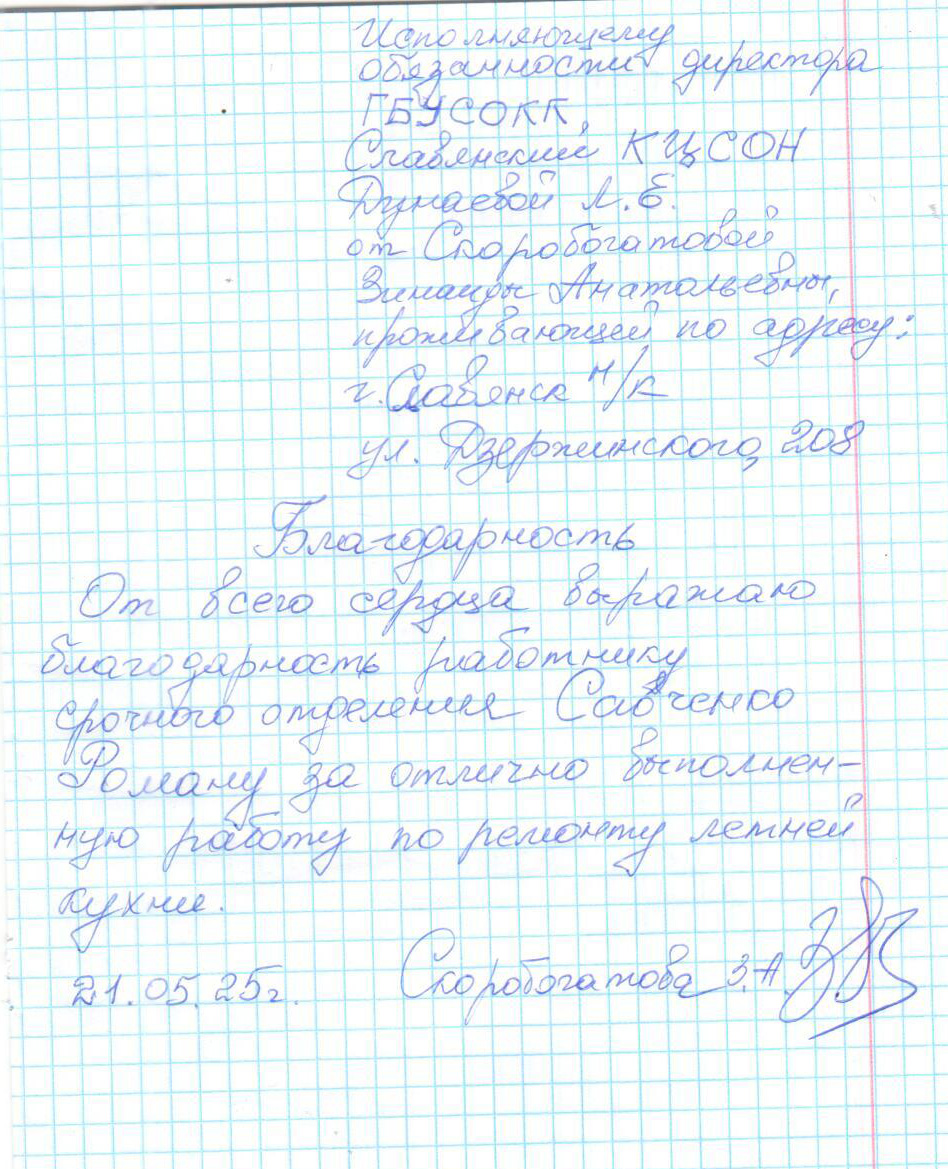 Исполняющему
обязанности директора
ГБУСОКК,
Славянский КЦСОН
Дунаевой Л.Е.
от Скоробогатовой
Зинаиды Анатольевны,
проживающей по адресу:
г. Славянск н/К
ул. Дзержинского, 208
Благодарность
От всего сердца выражаю
благодарность работнику
срочного отделения Савченко
Роману за отлично выполнен-
ную работу по ремонту летней
кухни.
21.05.25г. Скоробогатова З.А.